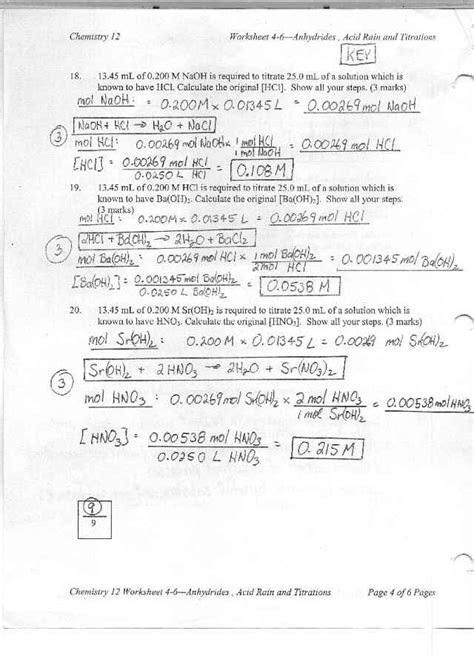 Chemistry 12 Worksheet 4-6—Anhydrides , Acid Rain and Titrations
KEY
18. 13.45 mL of 0.200 M NaOH is required to titrate 25.0 mL of a solution which is
known to have HCl. Calculate the original [HCl]. Show all your steps. (3 marks)
mol NaOH: = 0.200M x 0.01345 L = 0.00269 mol NaOH
NaOH + HCl → H2O + NaCl
3
mol HCl: 0.00269 mol NaOH x 1 mol HCl / 1 mol NaOH = 0.00269 mol HCl
[HCl] = 0.00269 mol HCl / 0.0250 L HCl = 0.108 M
19. 13.45 mL of 0.200 M HCl is required to titrate 25.0 mL of a solution which is
known to have Ba(OH)2. Calculate the original [Ba(OH)2]. Show all your steps.
(3 marks)
mol HCl : 0.200M x 0.01345 L = 0.00269 mol HCl
2HCl + Ba(OH)2 → 2H2O + BaCl2
3
mol Ba(OH)2: 0.00269 mol HCl x 1 mol Ba(OH)2 / 2 mol HCl = 0.001345 mol Ba(OH)2
[Ba(OH)2] = 0.001345 mol Ba(OH)2 / 0.0250 L Ba(OH)2 = 0.0538 M
20. 13.45 mL of 0.200 M Sr(OH)2 is required to titrate 25.0 mL of a solution which is
known to have HNO3. Calculate the original [HNO3]. Show all your steps. (3 marks)
mol Sr(OH)2 : 0.200 M x 0.01345 L = 0.00269 mol Sr(OH)2
Sr(OH)2 + 2 HNO3 → 2H2O + Sr(NO3)2
3
mol HNO3 : 0.00269 mol Sr(OH)2 x 2 mol HNO3 / 1 mol Sr(OH)2 = 0.00538 mol HNO3
[HNO3] = 0.00538 mol HNO3 / 0.0250 L HNO3 = 0.215 M
9
9
Chemistry 12 Worksheet 4-6—Anhydrides , Acid Rain and Titrations Page 4 of 6 Pages